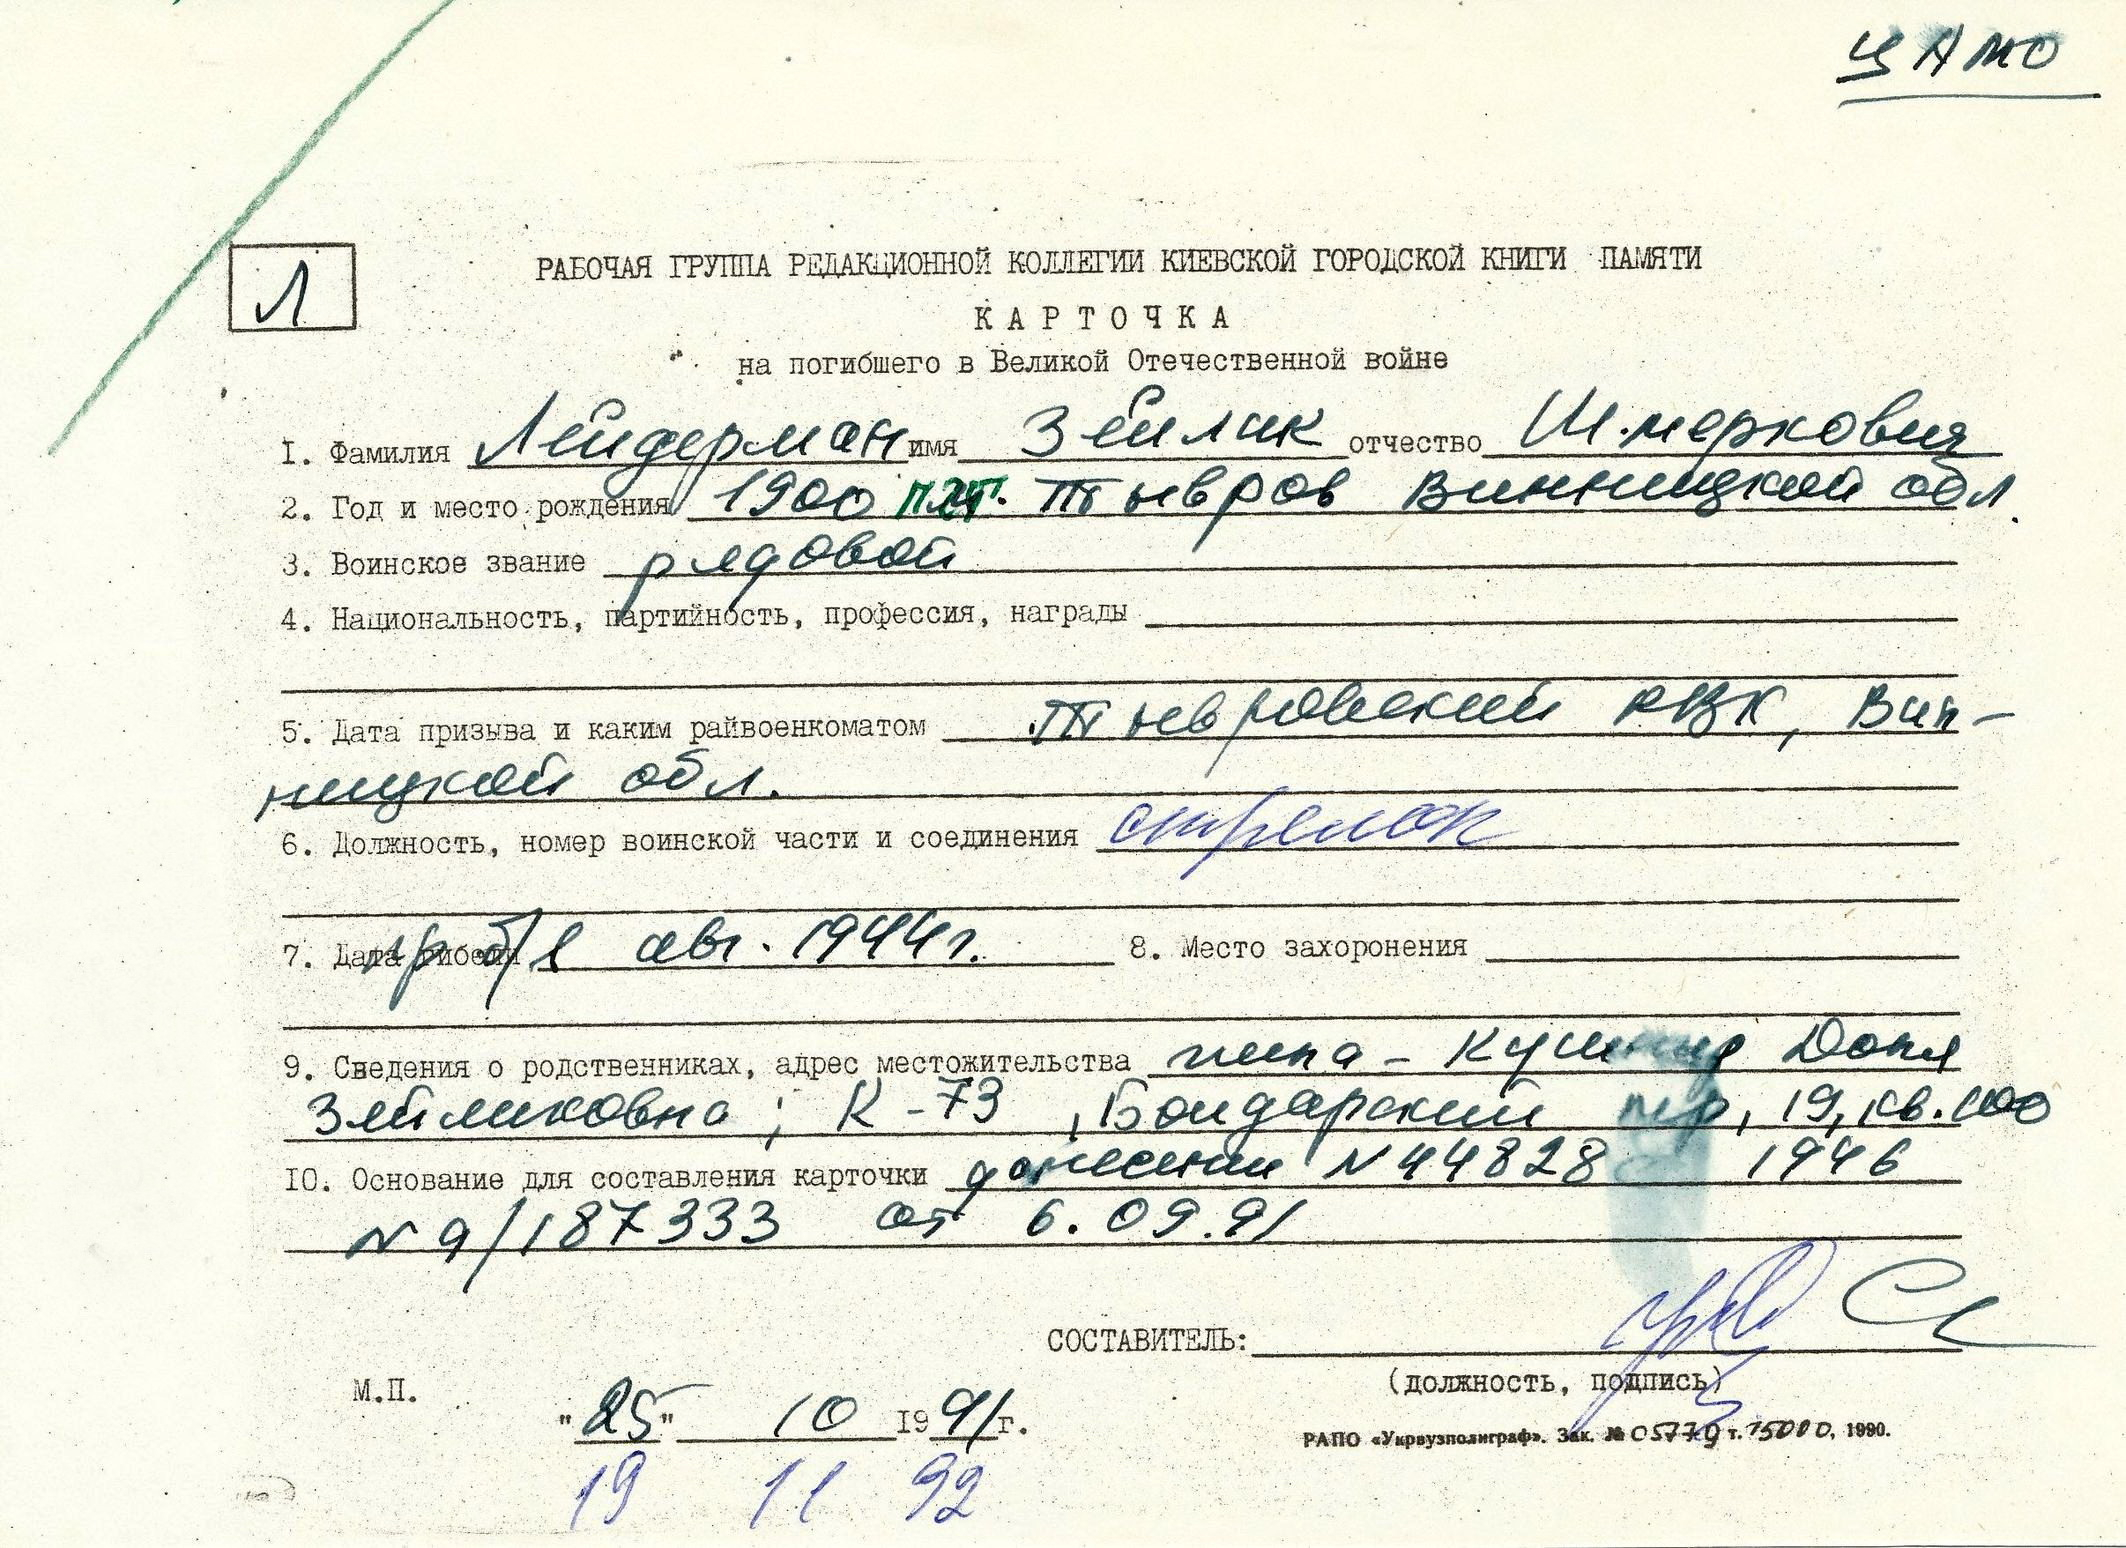 ЦАМО
Л
РАБОЧАЯ ГРУППА РЕДАКЦИОННОЙ КОЛЛЕГИИ КИЕВСКОЙ ГОРОДСКОЙ КНИГИ ПАМЯТИ
КАРТОЧКА
на погибшего в Великой Отечественной войне
1. Фамилия Лейдерман имя Зейлик отчество Шмеркович
2. Год и место рождения 1900 пгт. Тывров Винницкой обл.
3. Воинское звание рядовой
4. Национальность, партийность, профессия, награды
5. Дата призыва и каким райвоенкоматом Тывровский РВК, Вин-
ницкой обл.
6. Должность, номер воинской части и соединения стрелок
7. Дата гибели пр б/в авг. 1944г. 8. Место захоронения
9. Сведения о родственниках, адрес местожительства Доня
Зейликовна; К-73, Бондарский пер, 19, кв. 100
10. Основание для составления карточки донесение N 44828 1946
N 9/187333 от 6.09.91
СОСТАВИТЕЛЬ:
(должность, подпись)
М.П.
"25" 10 1991г.
РАПО «Укрвузполиграф». Зак. № 05779 т. 15000, 1990.
19 11 92